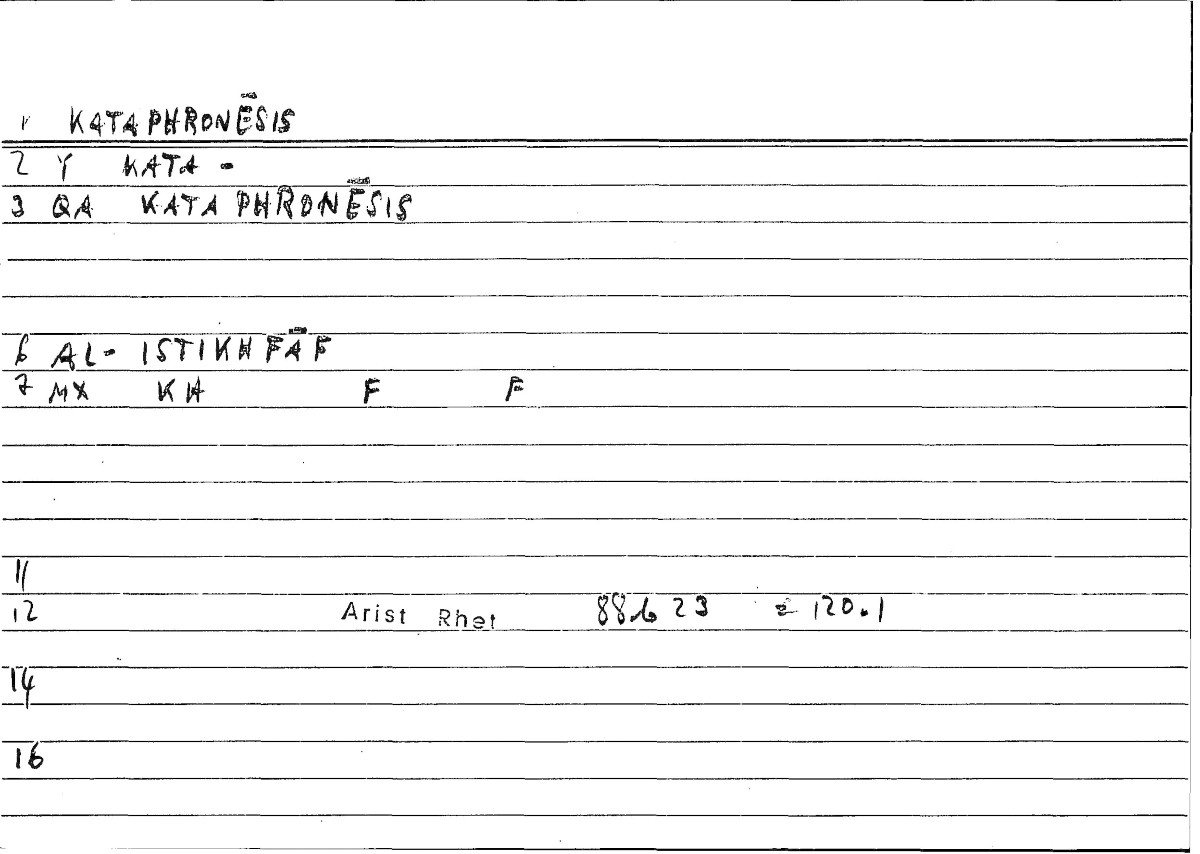 1 KATAPHRONĒSIS
2 Y KATA -
3 QA KATAPHRONĒSIS
6 AL- ISTIKHFĀF
7 MX KH F F
11
12 Arist Rhet 88b 23 = 120.1
14
16